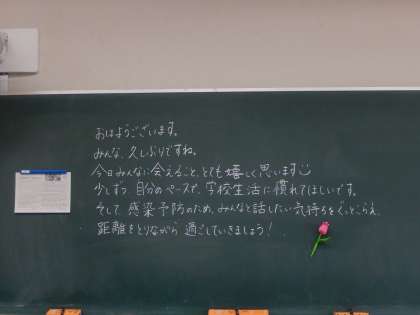 おはようございます。
みんな、久しぶりですね。
今日みんなに会えること、とても嬉しく思います
少しずつ、自分のペースで、学校生活に慣れてほしいです。
そして、感染予防のため、みんなと話したい気持ちをぐっとこらえ、
距離をとりながら過ごしていきましょう！